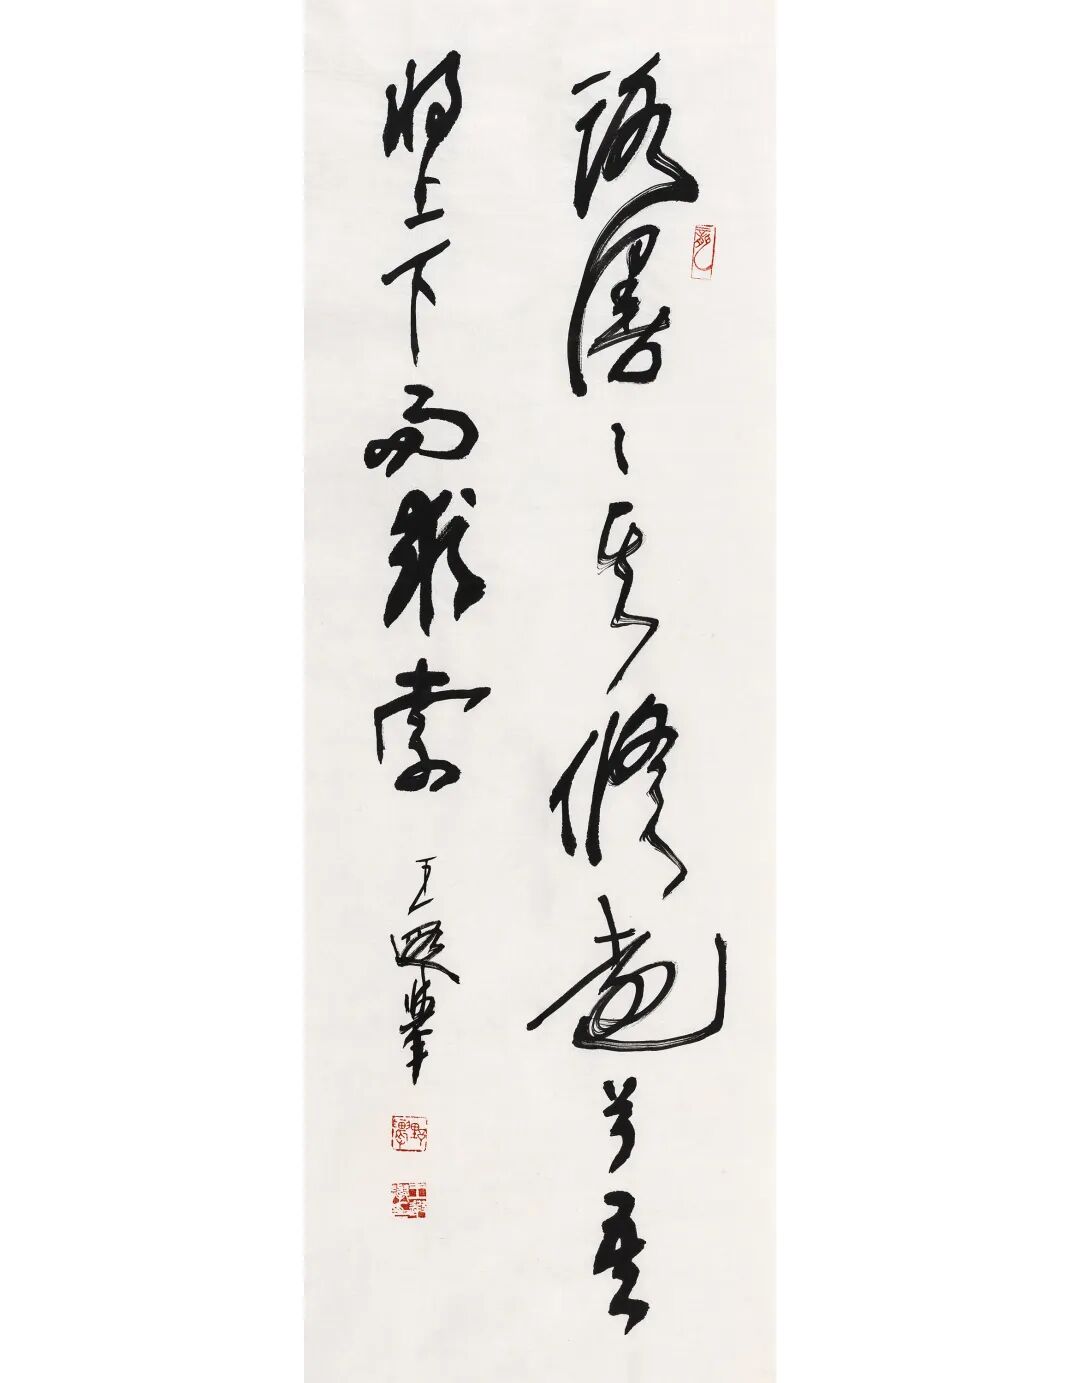 路漫〻其修遠兮吾
将上下而求索
王遐舉